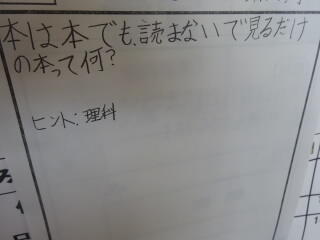 本は本でも、読まないで見るだけ
の本って何?
ヒント:理科